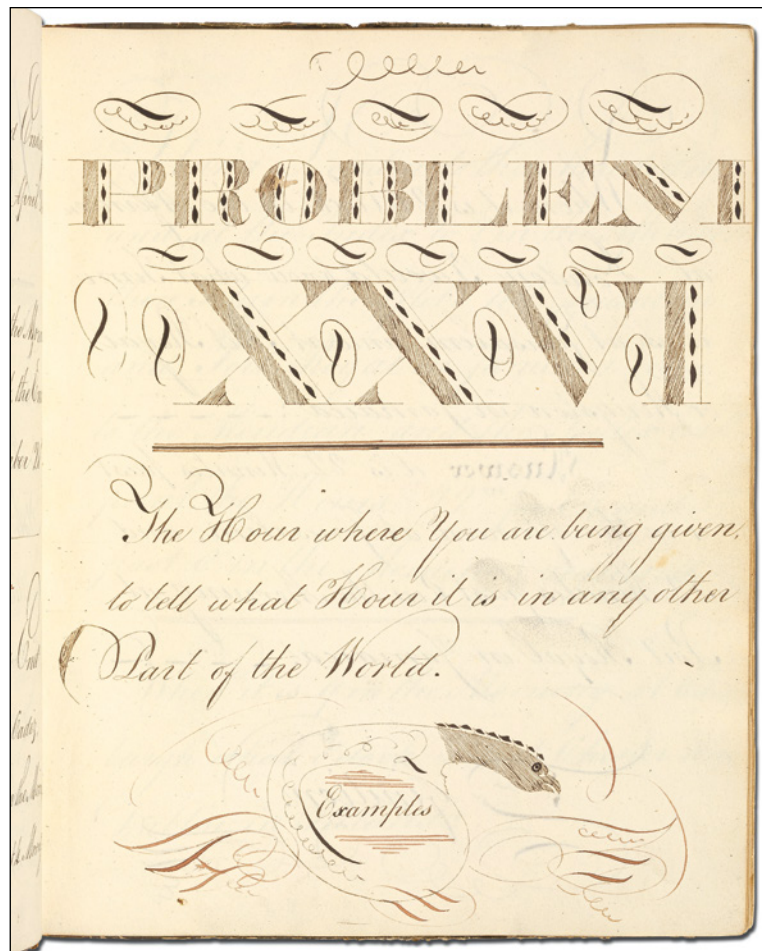 PROBLEM
XXVI
The Hour where You are being given,
to tell what Hour it is in any other
Part of the World.
Examples